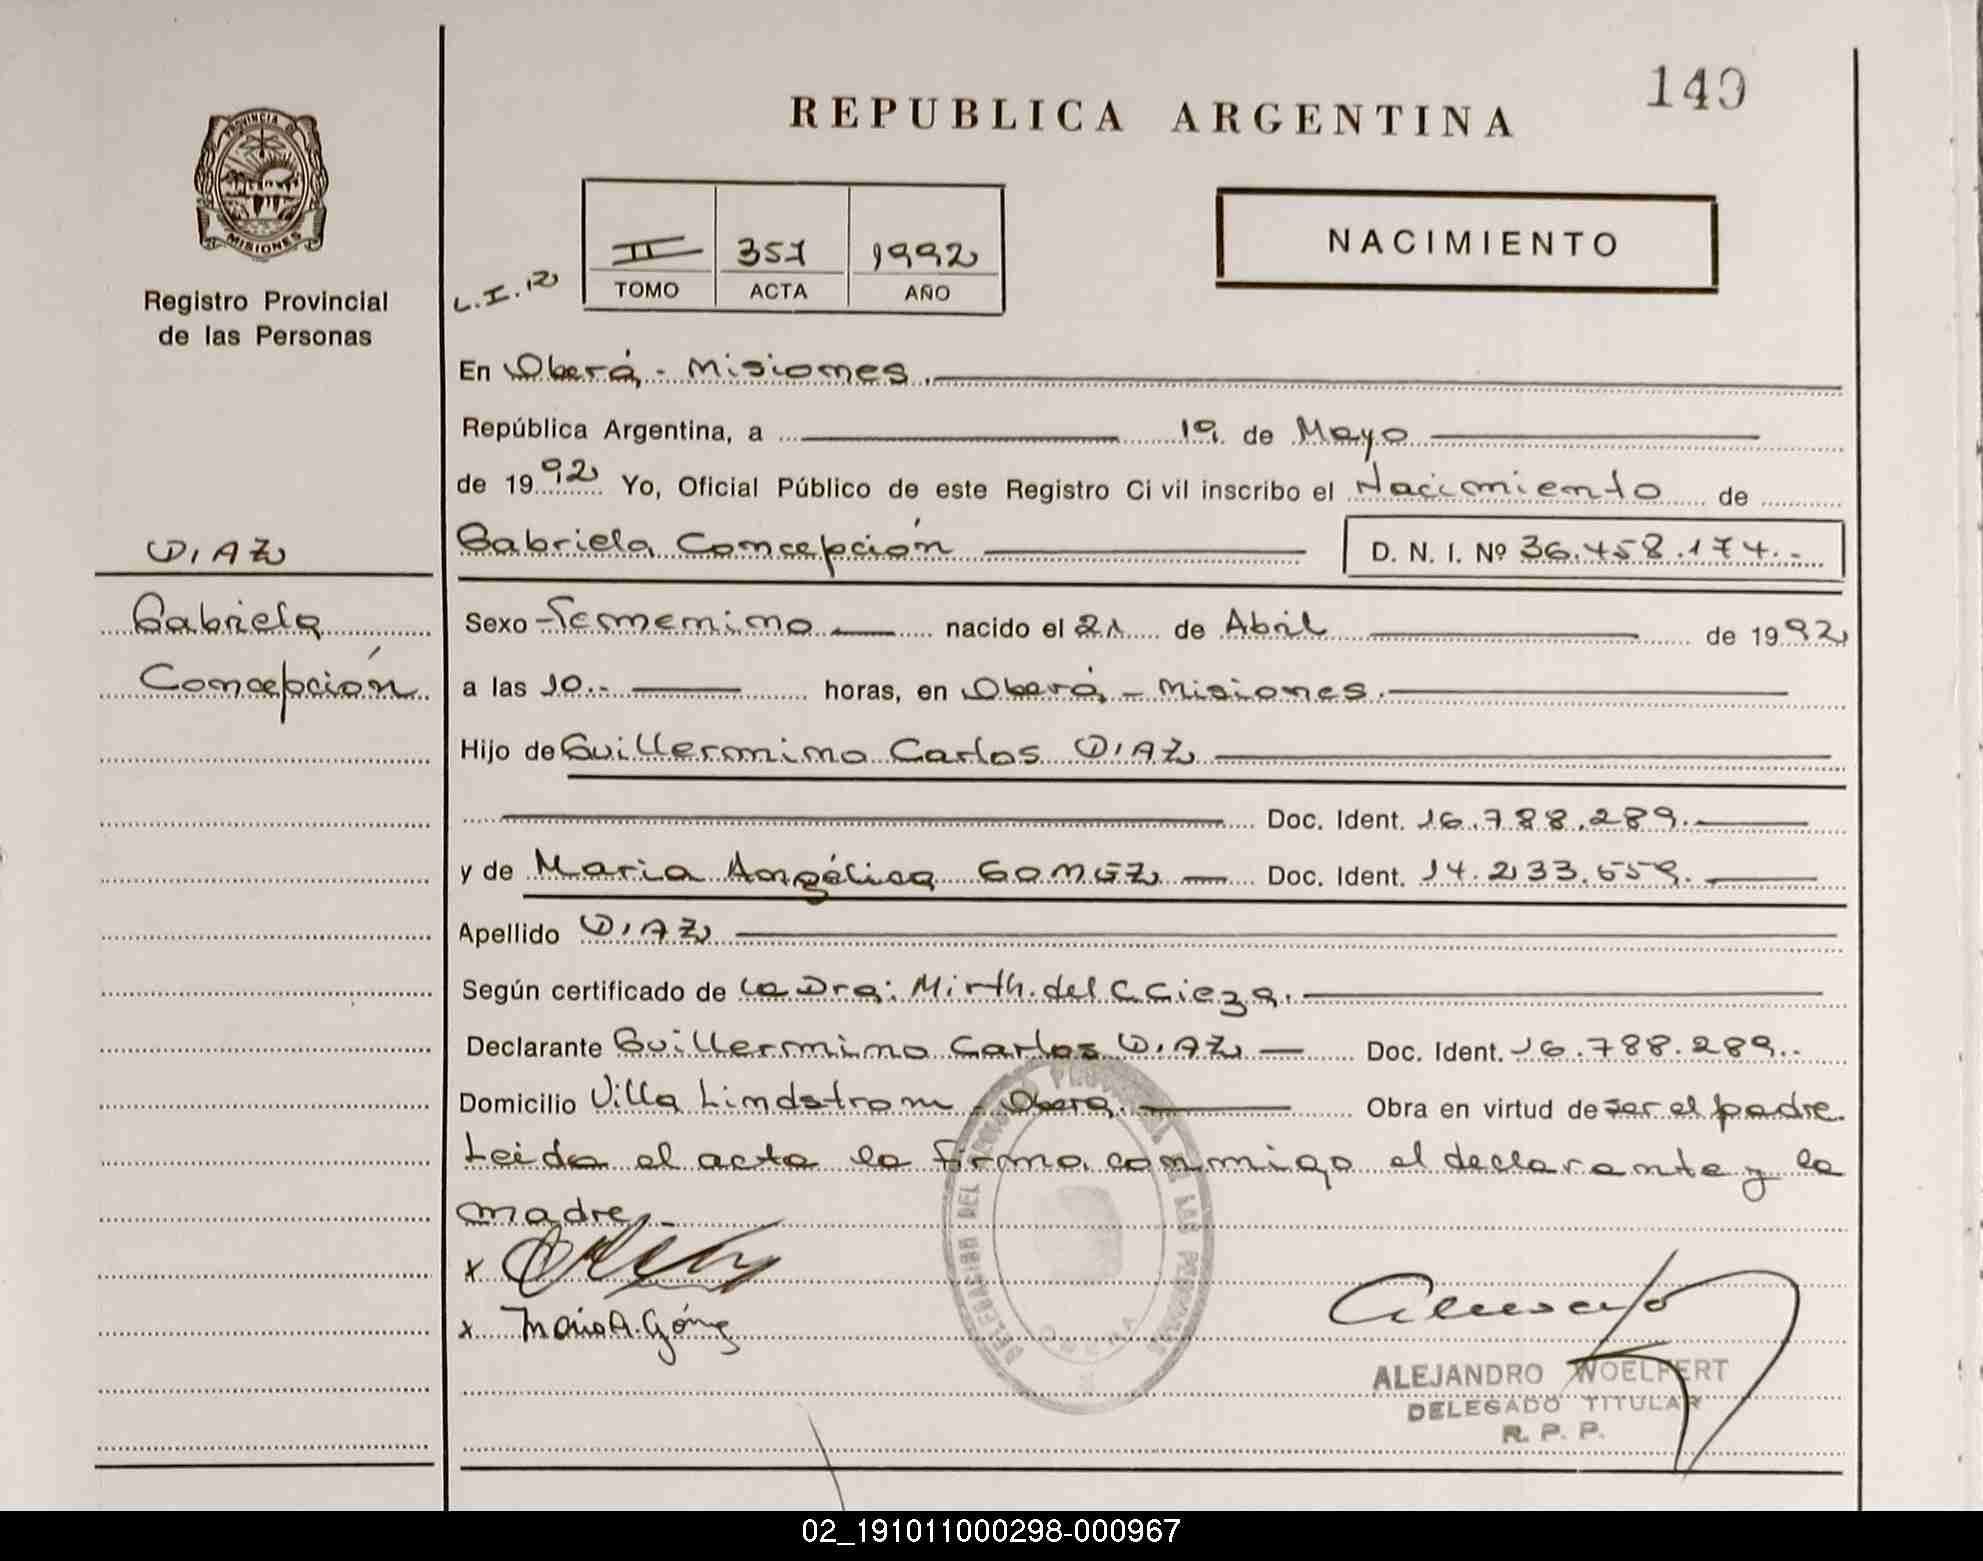 149
REPUBLICA ARGENTINA
PROVINCIA DE
MISIONES
Registro Provincial
de las Personas
L.I.12
II 357 1992
TOMO ACTA AÑO
NACIMIENTO
En Oberá - Misiones.
República Argentina, a 19 de Mayo
de 1992 Yo, Oficial Público de este Registro Civil inscribo el Nacimiento de
DIAZ
Gabriela Concepción D. N. I. Nº 36.458.174.-
Gabriela
Concepción
Sexo Femenino nacido el 21 de Abril de 1992
a las 10.- horas, en Oberá - Misiones.
Hijo de Guillermino Carlos DIAZ
Doc. Ident. 16.788.289.
y de Maria Angélica GOMEZ Doc. Ident. 14.233.659.
Apellido DIAZ
Según certificado de la Dra: Mirth. del C. Cieza.
Declarante Guillermino Carlos DIAZ Doc. Ident. 16.788.289.
Domicilio Villa Lindstrom - Oberá. Obra en virtud de ser el padre.
Leida el acta la firma conmigo el declarante y la
madre.-
x
x Maria A. Gómez
DELEGACION DEL REGISTRO PROVINCIAL DE LAS PERSONAS
OBERA
ALEJANDRO WOELFERT
DELEGADO TITULAR
R. P. P.
02_191011000298-000967